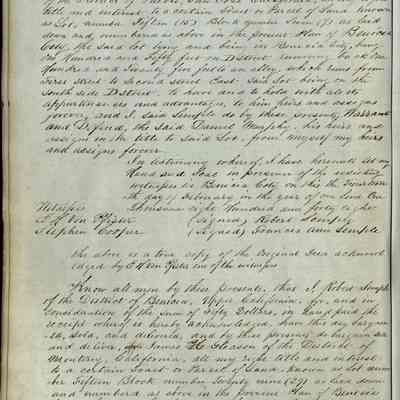 to a certain Tract or Parcel of Land known
as Lot number Fifteen (15) Block number Seven (7) as laid
down and numbered as above in the present Plan of Benicia
City, the said lot lying and being in Benicia City, being
One Hundred and Fifty feet on District running back One
Hundred and Twenty five feet to an alley, which runs from
First street to Second street East said Lot being on the
South side District, to have and to hold with all its
appurtenances and advantages, to him heirs and assigns
forever, and I said Semple do by these presents, Warrant
and Defend, the Said Daniel Murphy, his heirs and
assigns in the title to Said Lot, from myself my heirs
and assigns forever.
In testimony whereof, I have hereunto set my
Hand and Seal in presence of the existing
witnesses in Benicia City on this the
th day of February in the year of our Lord One
Witnesses Thousand eight Hundred and forty eight
E. H. Von Pfister (Signed) Robert Semple
Stephen Cooper (Signed) Frances Ann Semple
the above is a true copy of the original Deed acknowl
edged by E H Von Pfister one of the witnesses
Know all men by these presents, that I Robert Semple
of the District of Benicia, Upper California, for, and in
Consideration of the Sum of Fifty Dollars, in hand paid the
receipt whereof is hereby acknowledged, have this day bargain
ed, sold, and delivered, and by these presents do bargain sell
and deliver, James H Gleason of the District of
Monterey, California, all my right title and interest
to a certain Tract or Parcel of Land, known as Lot num
ber Fifteen Block number Twenty nine (29) as laid down
and numbered as above in the present Plan of Benicia